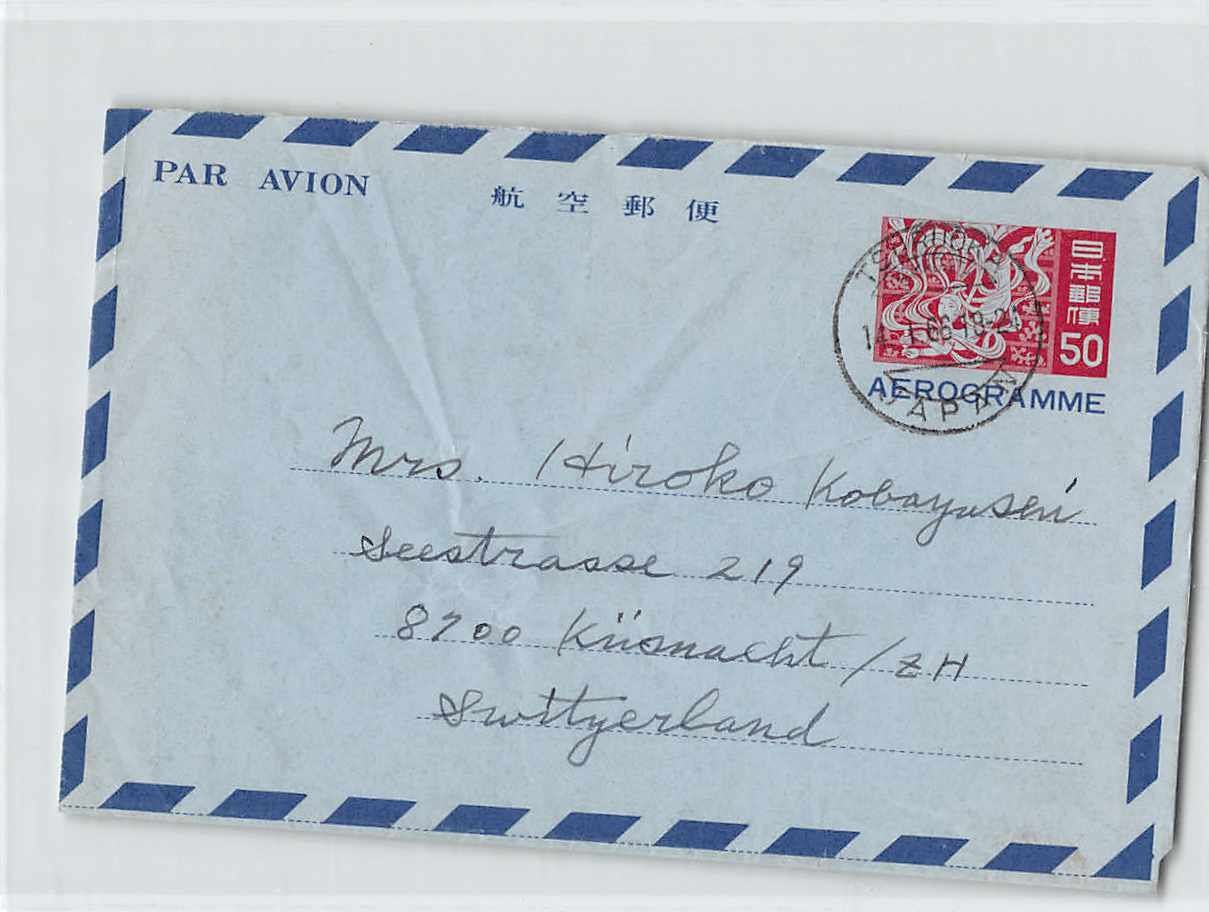 PAR AVION 航空郵便
日本郵便
50
14. 1.66 18-24
JAPAN
AEROGRAMME
Mrs. Hiroko Kobayashi
Seestrasse 219
8700 Küsnacht / ZH
Switzerland